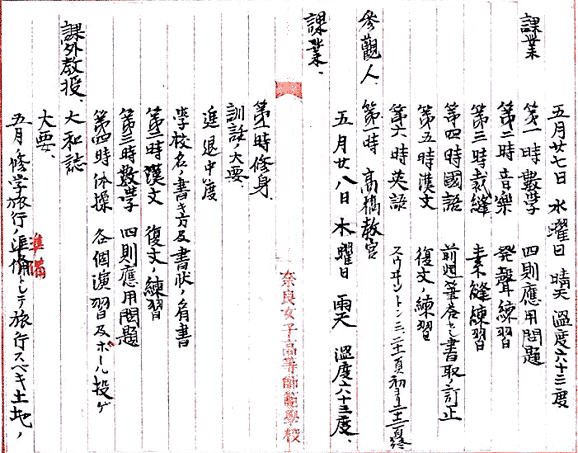 五月廿七日 水曜日 晴天 溫度六十三度
課業
第一時數學 四則應用問題
第二時音樂 発聲練習
第三時裁縫 素縫練習
第四時國語 前週筆答セシ書取ノ訂正
第五時漢文 復文ノ練習
第六時英語 スウヰントン三、二十一頁初ヨリ二十二頁終
參觀人、
第一時 高橋教官
五月廿八日 木曜日 雨天 溫度六十三度、
課業、
奈良女子高等師範學校
第一時修身、
訓話ノ大要、
進退中度
學校名ノ書キ方及書狀ノ肩書
第二時漢文 復文ノ練習
第三時數學 四則應用問題
第四時体操 各個演習及ボール投ゲ
課外教授、
大和誌
大要、
準備
五月修学旅行ノ準備トシテ旅行スベキ土地ノ